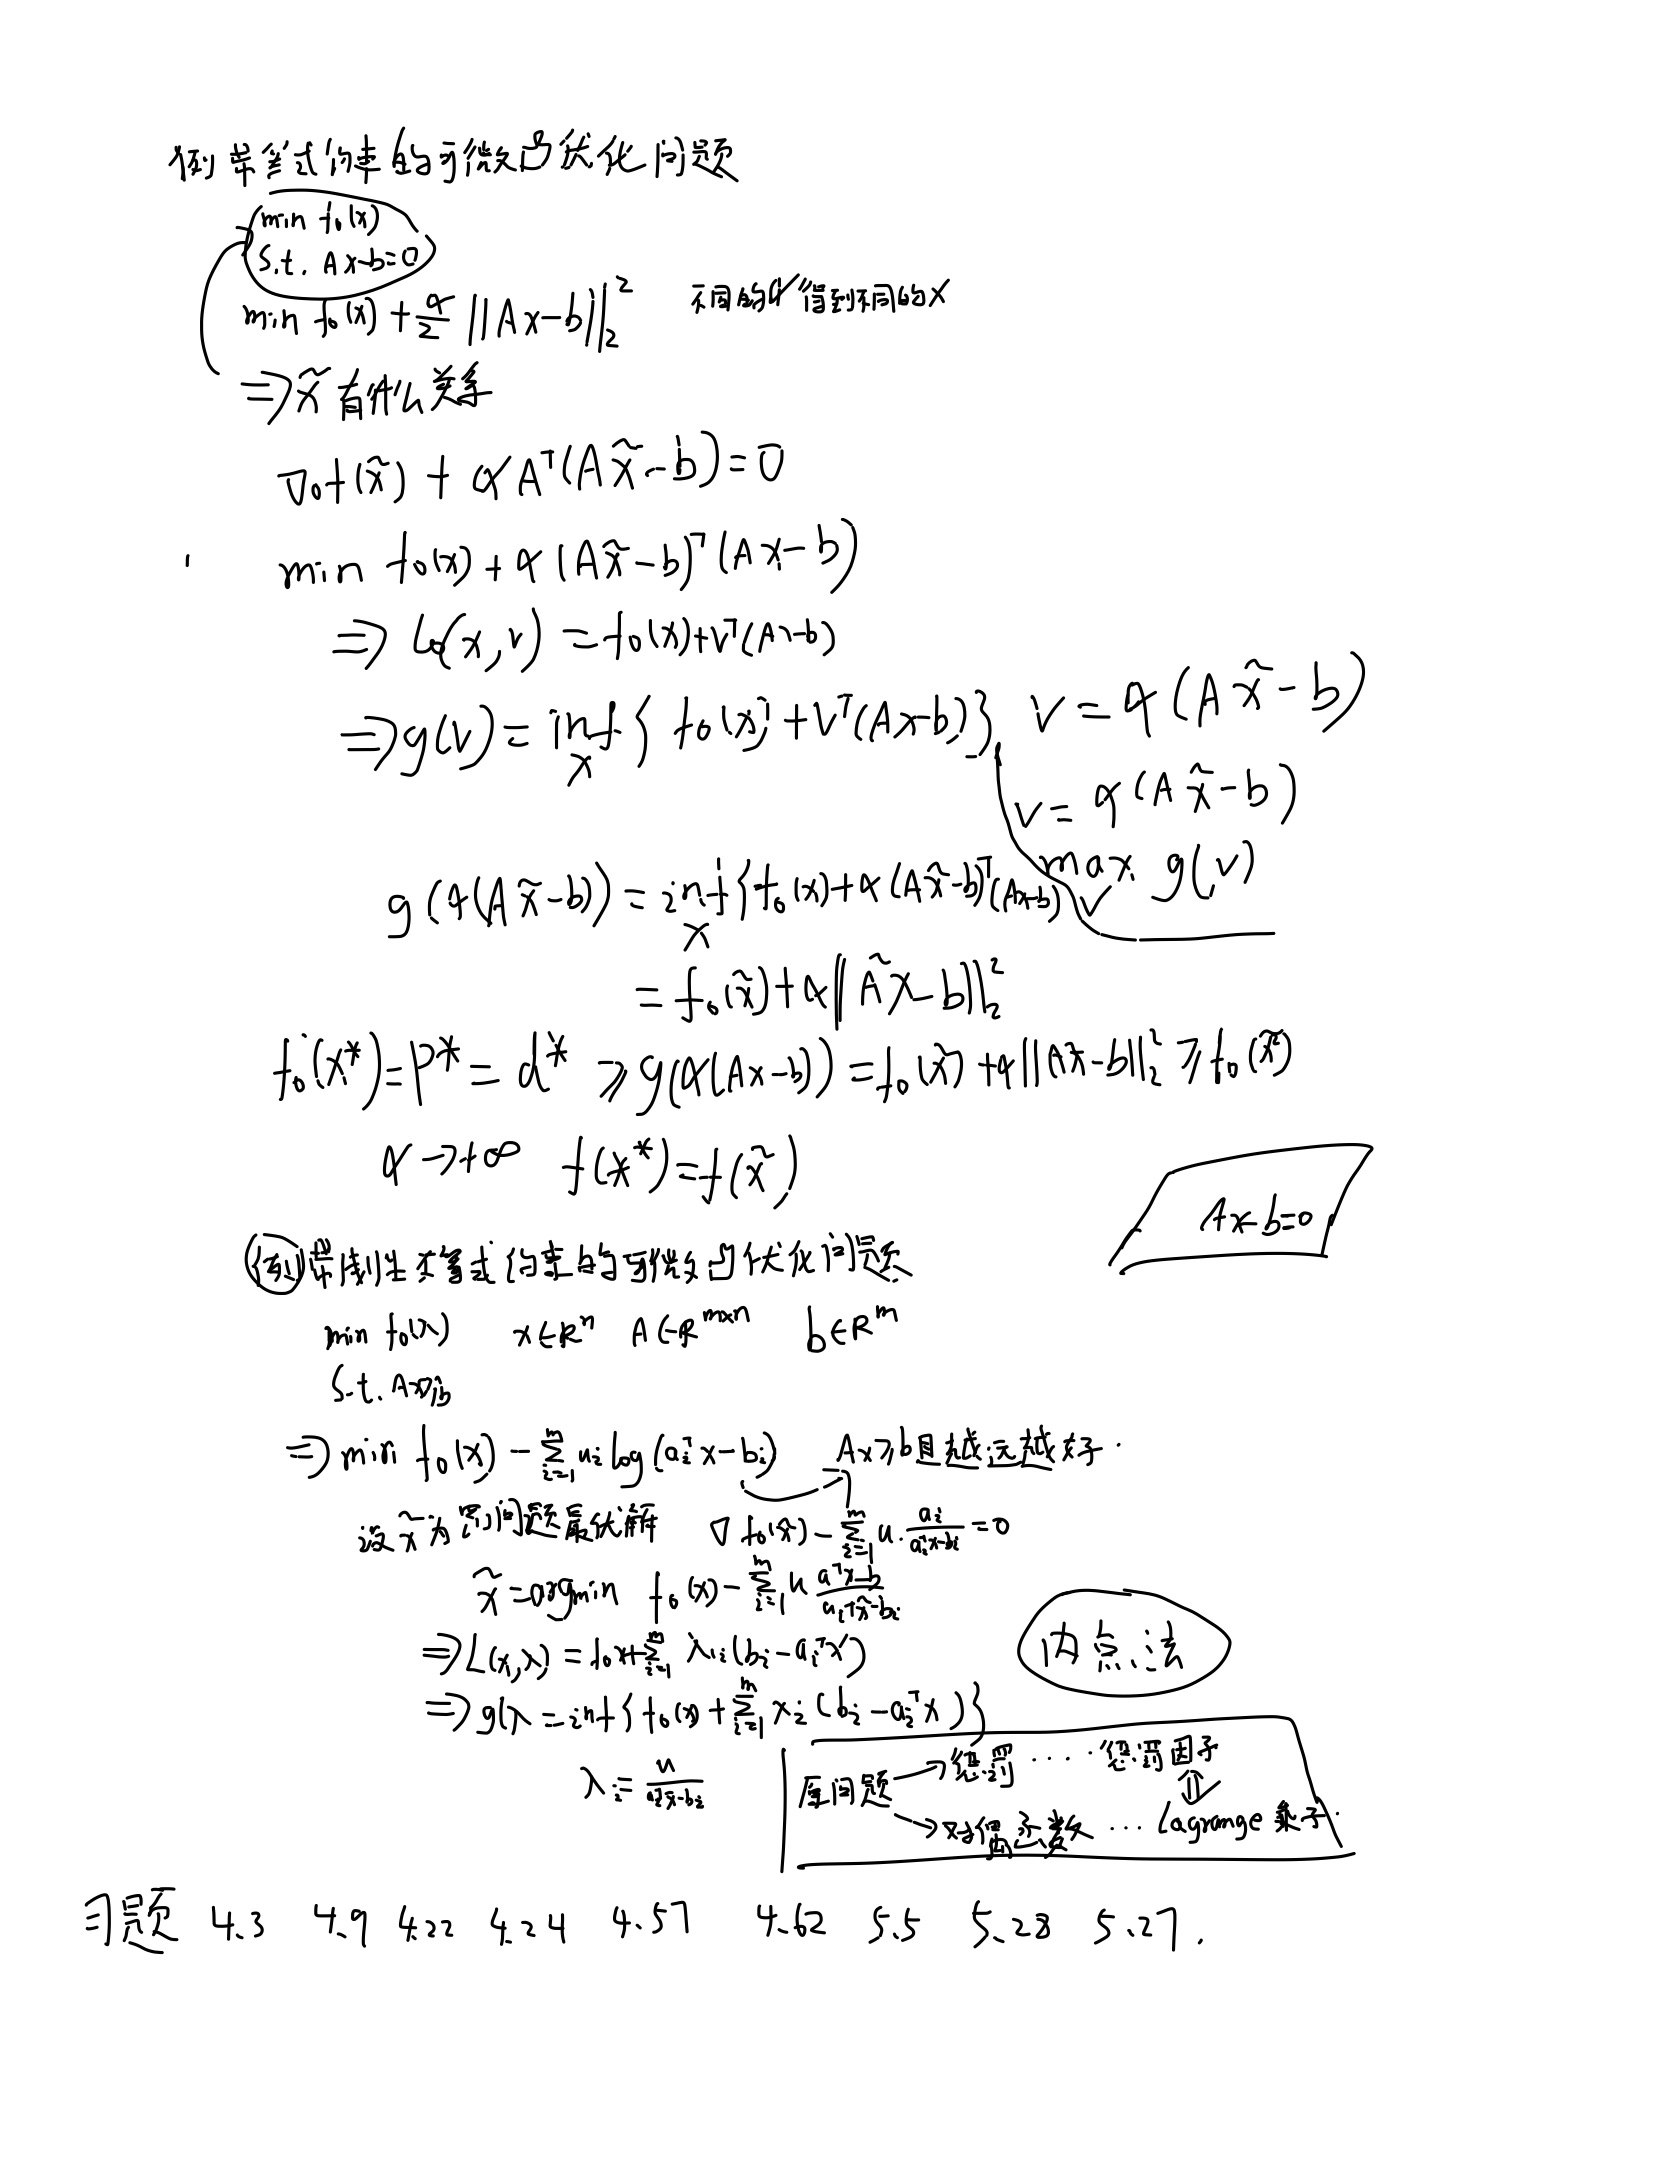 例 带等式约束的可微凸优化问题
min f₀(x)
s.t. Ax-b=0
min f₀(x) + α/2 ||Ax-b||₂² 不同的α得到不同的x
⇒ x̃ 有什么关系
∇₀f(x̃) + αAᵀ(Ax̃-b)=0
min f₀(x) + α(Ax̃-b)ᵀ(Ax-b)
⇒ L(x,v) = f₀(x)+vᵀ(Ax-b)
⇒ g(v) = inf_x { f₀(x) + vᵀ(Ax-b) } v = α(Ax̃-b)
v = α(Ax̃-b)
max_v g(v)
g(α(Ax̃-b)) = inf_x {f₀(x)+α(Ax̃-b)ᵀ(Ax-b)
= f₀(x̃)+α||Ax̃-b||₂²
f₀(x*)=p*=d* ≥ g(α(Ax-b)) = f₀(x̃)+α||Ax̃-b||₂² ≥ f₀(x̃)
α→+∞ f(x*)=f(x̃)
Ax-b=0
例 带线性不等式约束的可微凸优化问题
min f₀(x) x∈Rⁿ A∈R^{m×n} b∈R^m
s.t. Ax≥b
⇒ min f₀(x) - Σ_{i=1}^m u_i log(a_iᵀx-b_i) Ax≥b且越远越好
设x̃为原问题最优解 ∇f₀(x̃) - Σ_{i=1}^m u·a_i/(a_iᵀx-b_i) =0
x̃=argmin f₀(x) - Σ_{i=1}^m u (aᵀx-b)/(a_iᵀx̃-b_i)
⇒ L(x,λ) = f₀x+Σ_{i=1}^m λ_i(b_i-a_iᵀx)
内点法
⇒ g(λ = inf{f₀(x) + Σ_{i=1}^m x_i(b_i-a_iᵀx)}
λ_i = u/(a_iᵀx̃-b_i)
原问题 → 惩罚 ····· 惩罚因子
⇓
→ 对偶函数 ··· Lagrange 乘子.
习题 4.3 4.9 4.22 4.24 4.57 4.62 5.5 5.28 5.27.